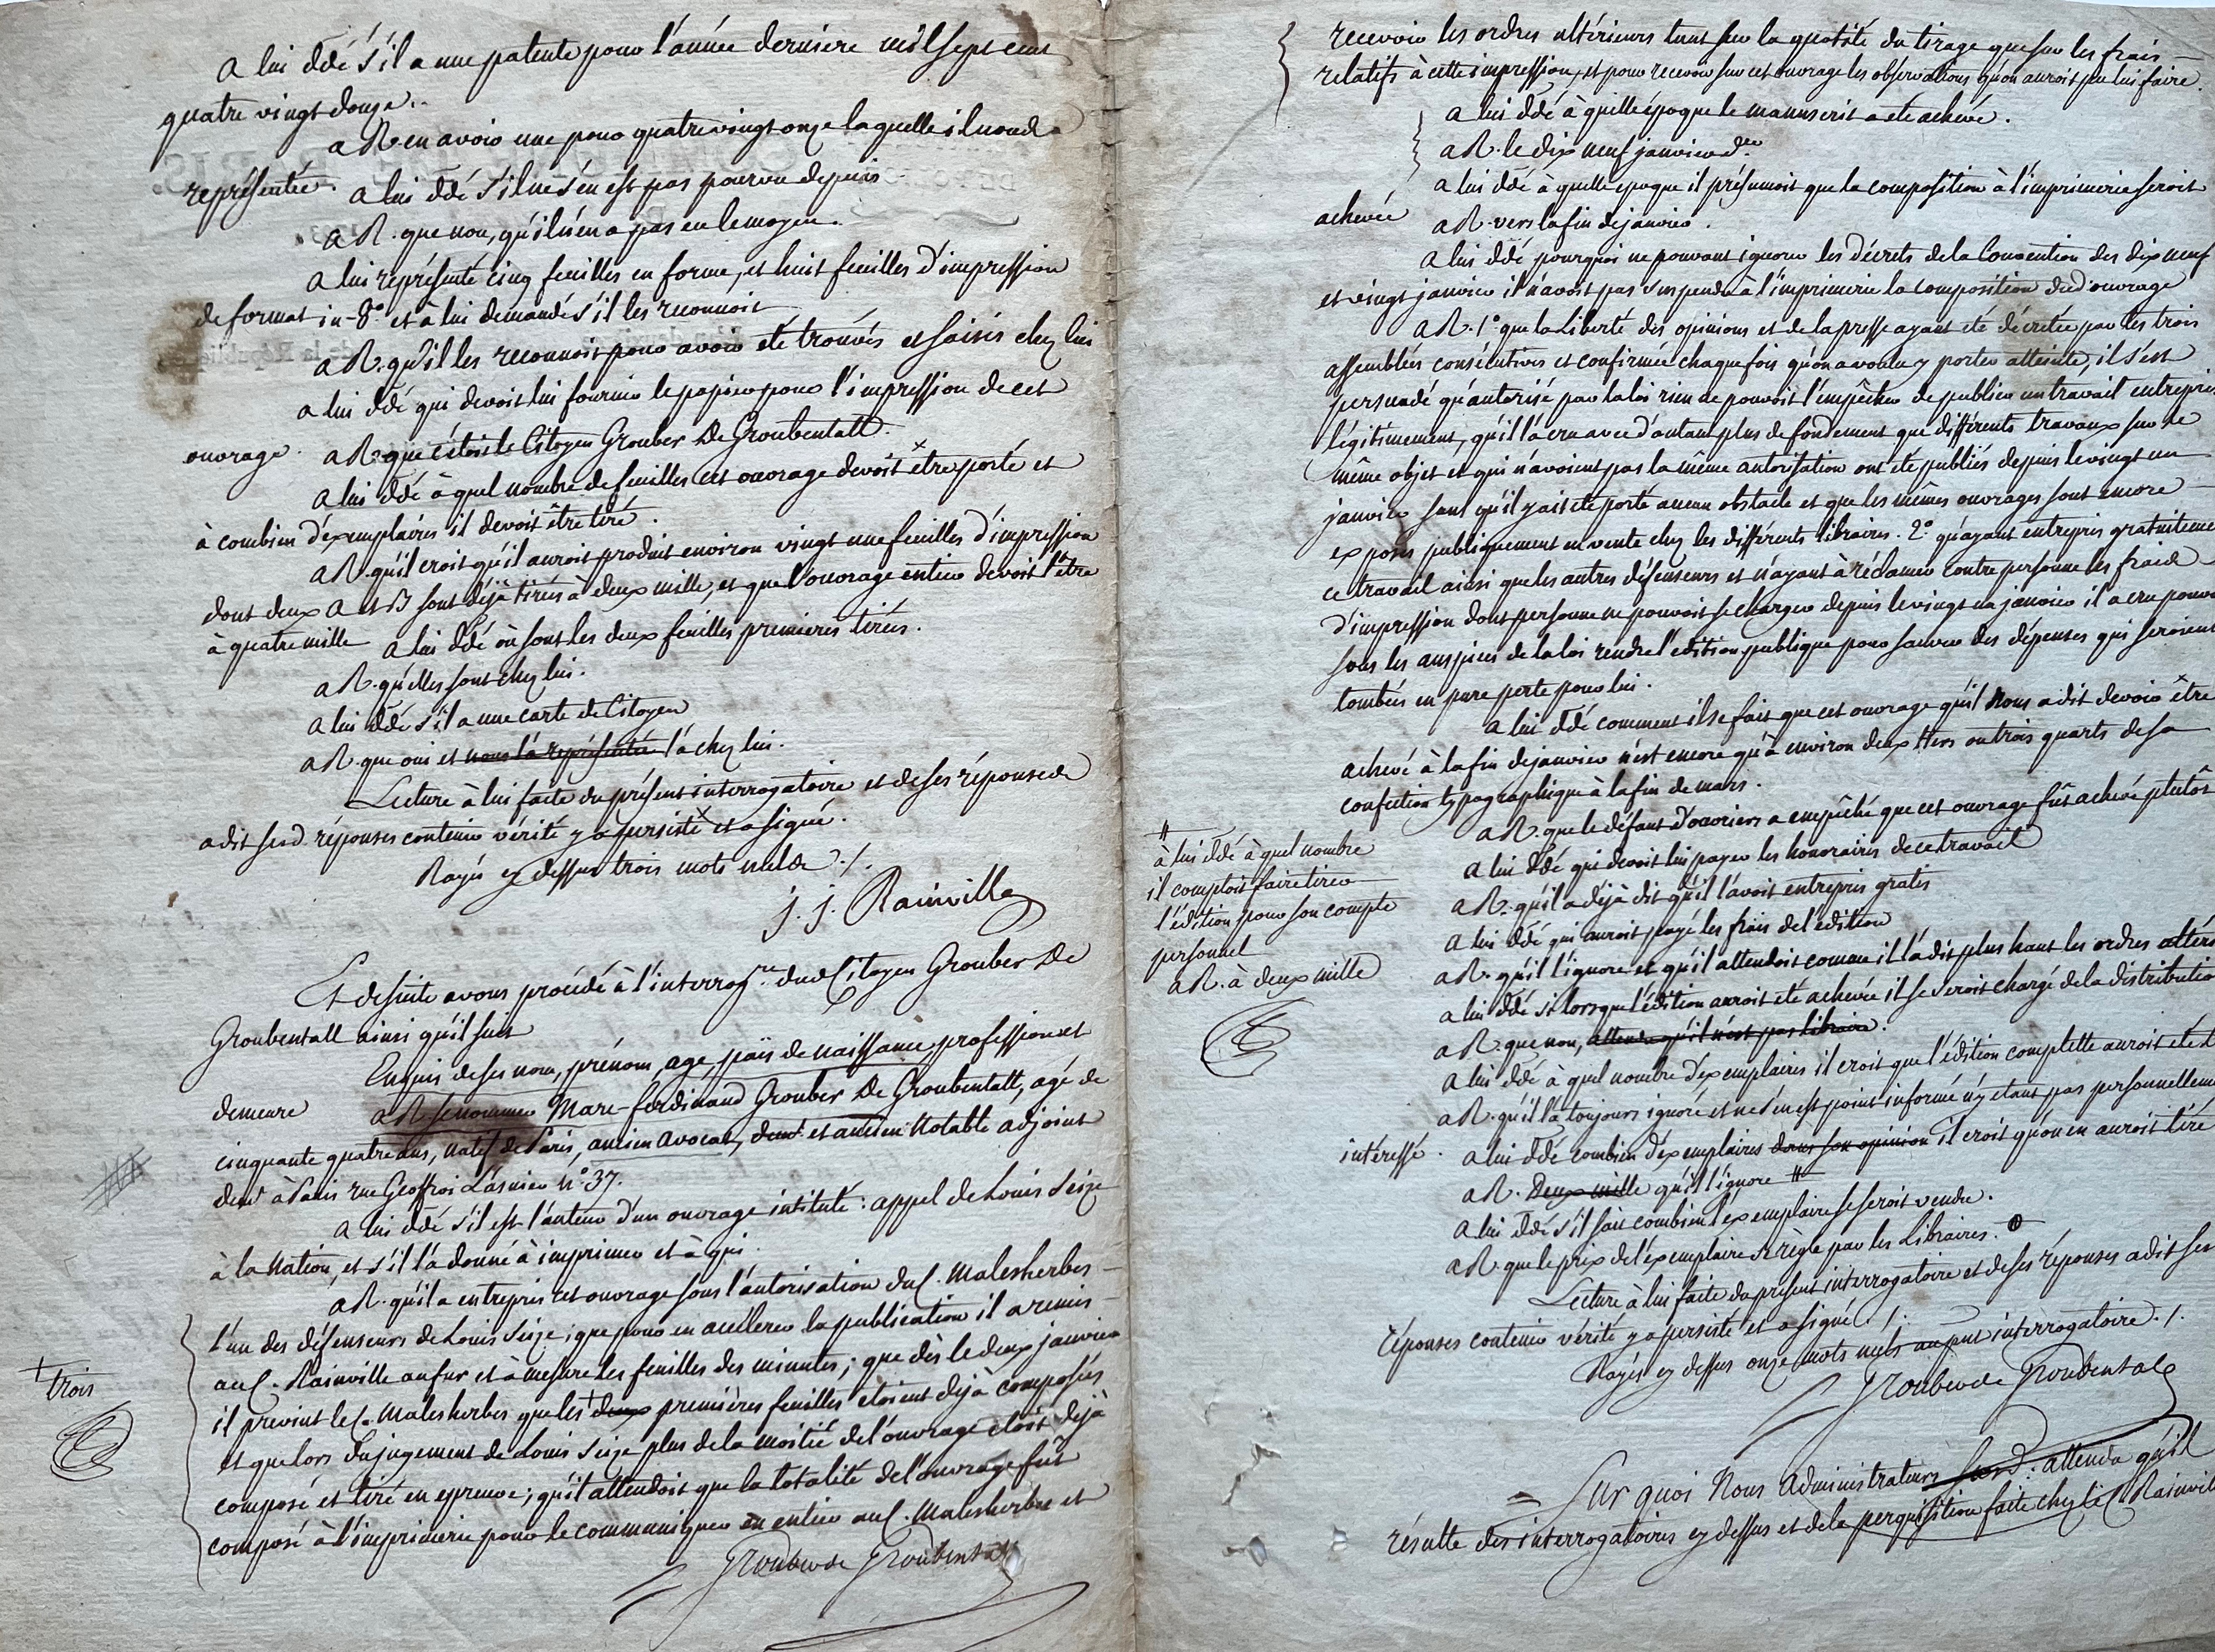 a lui ddé s'il a une patente pour l'année dernière mil sept cent
quatre vingt douze..
a R. en avoir une pour quatre vingt onze laquelle il nous a
représentée.
a lui ddé s'il ne s'en est pas pourvu depuis.
a R. que non, qu'il n'en a pas eu le moyen.
a lui représenté cinq feuilles en forme, et huit feuilles d'impression
de format in-8° et à lui demandé s'il les reconnoit
a R. qu'il les reconnoit pour avoir été trouvés et saisis chez lui
a lui ddé qui devoit lui fournir le papier pour l'impression de cet
ouvrage.
a R. que c'étoit le Citoyen Grouber De Groubentall.
a lui ddé à quel nombre de feuilles cet ouvrage devoit être porté et
à combien d'exemplaires il devoit être tiré.
a R. qu'il croit qu'il auroit produit environ vingt une feuilles d'impression
dont deux A et B sont déjà tirés à deux mille, et que l'ouvrage entier devoit l'être
à quatre mille
a lui ddé où sont les deux feuilles premieres tirées.
a R. qu'elles sont chez lui.
a lui ddé s'il a une carte de Citoyen
a R. que oui et nous l'a représentée l'a chez lui.
Lecture à lui faite du présent interrogatoire et de ses réponses
a dit sesd. réponses contenir vérité y a persisté et a signé.
Rayé cy dessus trois mots nuls ./.
J. J. Rainville
Et de suite avons procédé à l'interrog.re dud. Citoyen Grouber De
Groubentall ainsi qu'il suit
Enquis de ses nom, prénom, age, païs de naissance, profession et
demeure
a R. se nommer Marc-ferdinand Grouber De Groubentall, agé de
cinquante quatre ans, natif de Paris, ancien avocat, demt et ancien Notable adjoint
demt à Paris rue Geoffroi L'asnier n° 37.
a lui ddé s'il est l'auteur d'un ouvrage intitulé : appel de Louis Seize
à la Nation, et s'il l'a donné à imprimer et à qui.
a R. qu'il a entrepris cet ouvrage sous l'autorisation du C. Malesherbes
l'un des défenseurs de Louis Seize ; que pour en accélerer la publication il a remis
au C. Rainville au fur et à mesure les feuilles des minutes ; que dès le deux janvier
il prévint le C. Malesherbes que les + deux premières feuilles étoient déjà composées
+ trois
et que lors du jugement de Louis Seize plus de la moitié de l'ouvrage étoit déjà
composé et tiré en epreuve ; qu'il attendoit que la totalité de l'ouvrage fut
composé à l'imprimerie pour le communiquer en entier au C. Malesherbes et
Grouber de Groubentall
recevoir les ordres ultérieurs tant sur la quotité du tirage que sur les frais
relatifs à cette impression, et pour recevoir sur cet ouvrage les observations qu'on auroit pu lui faire.
a lui ddé à quelle époque le manuscrit a été achevé.
a R. le dix neuf janvier der
a lui ddé à quelle époque il présumoit que la composition à l'imprimerie seroit
achevée
a R. vers la fin de janvier.
a lui ddé pourquoi ne pouvant ignorer les décrets de la Convention des dix neuf
et vingt janvier il n'avoit pas suspendu à l'imprimerie la composition dud. ouvrage
a R. 1° que la Liberté des opinions et de la presse ayant été décrétée par les trois
assemblées consécutives et confirmée chaque fois qu'on a voulu y porter atteinte, il s'est
persuadé qu'autorisé par la loi rien ne pouvoit l'empêcher de publier un travail entrepris
légitimement, qu'il l'a cru avec d'autant plus de fondement que différents travaux sur le
même objet et qui n'avoient pas la même autorisation ont été publiés depuis le vingt un
janvier sans qu'il y ait été porté aucun obstacle et que les mêmes ouvrages sont encore
exposés publiquement en vente chez les différents libraires. 2° qu'ayant entrepris gratuiteme
ce travail ainsi que les autres défenseurs et n'ayant à réclamer contre personne les frais
d'impression dont personne ne pouvoit se charger depuis le vingt un janvier il a cru pouvo
sous les auspices de la loi rendre l'edition publique pour sauver des dépenses qui seroient
tombées en pure perte pour lui.
a lui ddé comment il se fait que cet ouvrage qu'il nous a dit devoir être
achevé à la fin de janvier n'est encore qu'à environ deux tiers ou trois quarts de sa
confection typographique à la fin de mars.
a R. que le défaut d'ouvriers a empêché que cet ouvrage fût achevé plutôt
a lui ddé qui devoit lui payer les honoraires de ce travail
a R. qu'il a déjà dit qu'il l'avoit entrepris gratis
a lui ddé qui auroit payé les frais de l'édition
a R. qu'il l'ignore et qu'il attendoit comme il l'a dit plus haut les ordres ultéri
a lui ddé si lorsque l'édition auroit été achevée il se seroit chargé de la distributio
a R. que non, attendu qu'il n'est pas libraire.
a lui ddé à quel nombre d'exemplaires il croit que l'édition complette auroit été t
a R. qu'il l'a toujours ignoré et ne s'en est point informé n'y étant pas personnelleme
intéressé.
a lui ddé combien d'exemplaires dans son opinion il croit qu'on en auroit tiré
a R. Deux mille qu'il l'ignore #
# à lui ddé à quel nombre
il comptoit faire tirer
l'édition pour son compte
personnel
a R. à deux mille
a lui ddé s'il sait combien l'exemplaire se seroit vendu.
a R. que le prix de l'exemplaire se règle par les Libraires.
Lecture à lui faite du présent interrogatoire et de ses réponses a dit ses
réponses contenir vérité y a persisté et a signé ./.
Rayés cy dessus onze mots nuls au put interrogatoire ./.
Grouber de Groubentall
Sur quoi Nous Administrateurs susd. attendu qu'il
résulte des interrogatoires cy dessus et de la perquisition faite chez le C. Rainvill